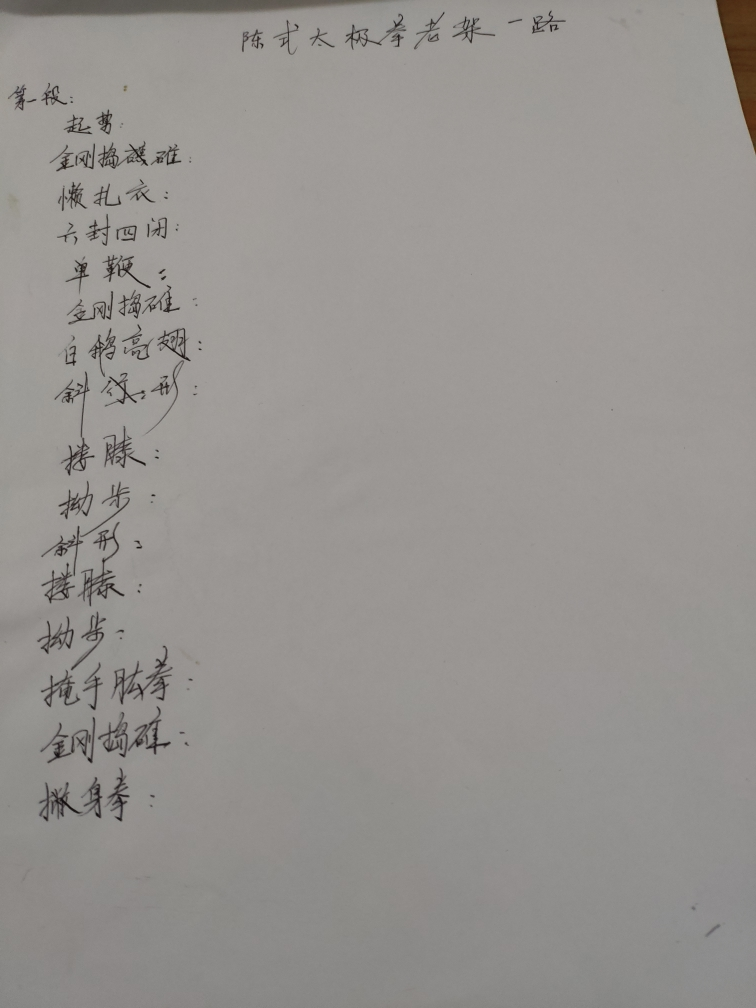 陈式太极拳老架一路
第一段:
起势:
金刚捣碓:
懒扎衣:
六封四闭:
单鞭:
金刚捣碓:
白鹅亮翅:
斜形:
搂膝:
拗步:
斜形:
搂膝:
拗步:
掩手肱拳:
金刚捣碓:
撇身拳: